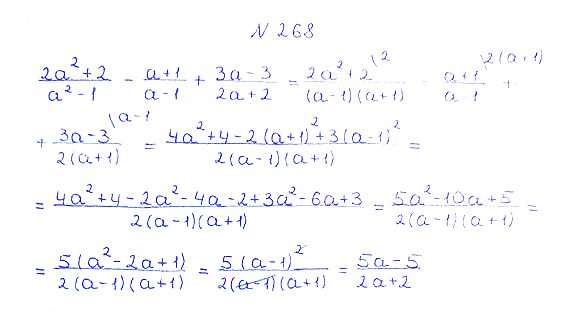 N 268
\frac{2a^2+2}{a^2-1} - \frac{a+1}{a-1} + \frac{3a-3}{2a+2} = \frac{2a^2+2}{(a-1)(a+1)}^{\backslash 2} - \frac{a+1}{a-1}^{\backslash 2(a+1)} +
+ \frac{3a-3}{2(a+1)}^{\backslash a-1} = \frac{4a^2+4-2(a+1)^2+3(a-1)^2}{2(a-1)(a+1)} =
= \frac{4a^2+4-2a^2-4a-2+3a^2-6a+3}{2(a-1)(a+1)} = \frac{5a^2-10a+5}{2(a-1)(a+1)} =
= \frac{5(a^2-2a+1)}{2(a-1)(a+1)} = \frac{5(a-1)^2}{2(a-1)(a+1)} = \frac{5a-5}{2a+2}